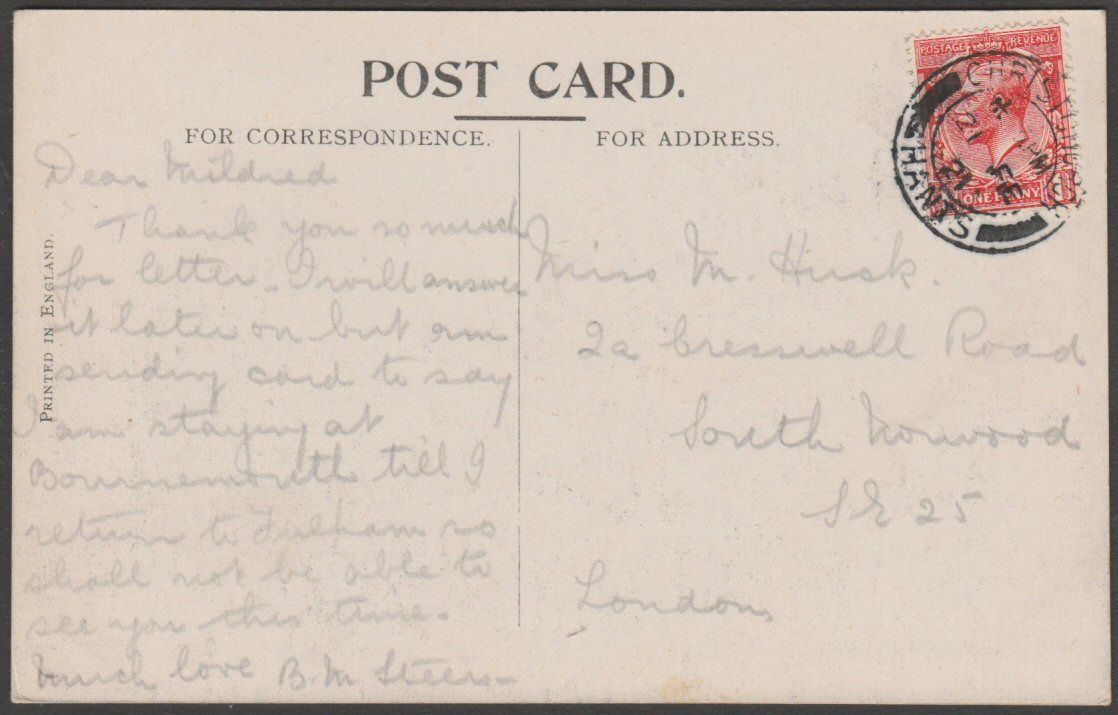 POST CARD.
FOR CORRESPONDENCE.
FOR ADDRESS.
PRINTED IN ENGLAND.
Dear Mildred
Thank you so much
for letter. I will answer
it later on but am
sending card to say
I am staying at
Bournemouth till I
return to Fulham so
shall not be able to
see you this time.
Much love B. M Steers
Miss M Husk.
2a Cresswell Road
South Norwood
SE 25
London
POSTAGE REVENUE
ONE PENNY
CHRISTCHURCH
HANTS
FE
21